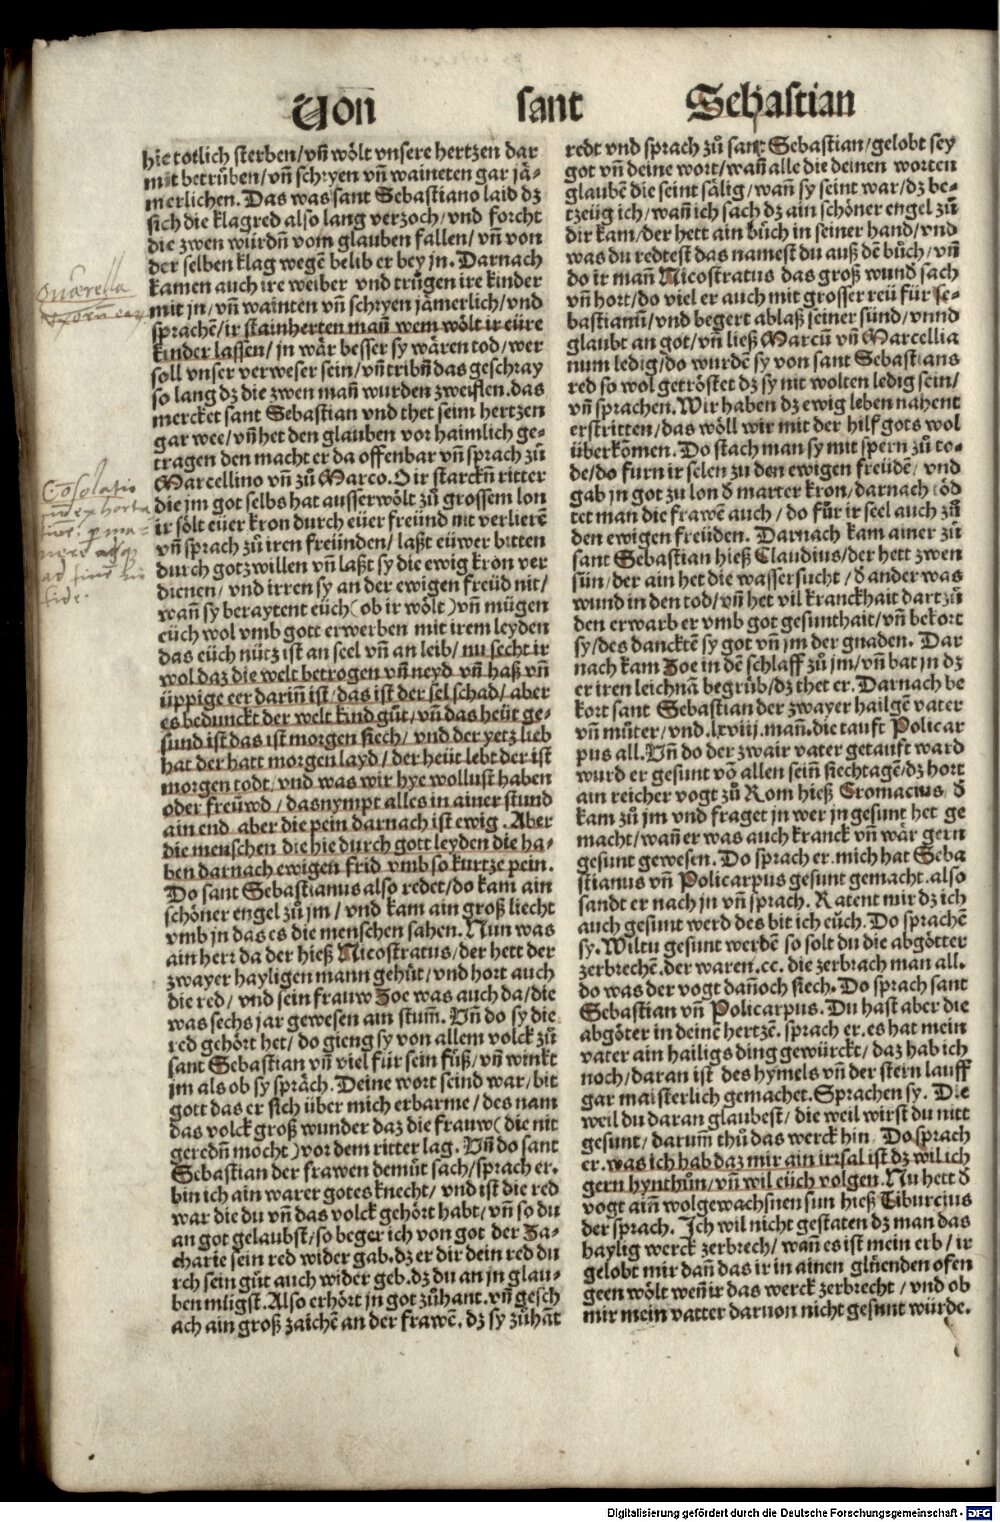 Von sant Sebastian
hie totlich sterben/vñ wölt vnsere hertzen dar
mit betrůben/vñ schryen vñ waineten gar jä-
merlichen. Das was sant Sebastiano laid dz
sich die klagred also lang verzoch/vnd forcht
die zwen würdñ vom glauben fallen/vñ von
der selben klag wegẽ belib er bey jn. Darnach
kamen auch ire weiber vnd trůgen ire kinder
mit jn/vñ wainten vñ schryen jämerlich/vnd
sprachẽ/ir stainherten mañ wem wölt ir eüre
kinder lassen/jn wär besser sy wären tod/wer
soll vnser verweser sein/vñ tribñ das geschray
so lang dz die zwen mañ wurden zweiflen.das
mercket sant Sebastian vnd thet seim hertzen
gar wee/vñ het den glauben vor haimlich ge-
tragen den macht er da offenbar vñ sprach zů
Marcellino vñ zů Marco. O ir starckñ ritter
die jm got selbs hat ausserwölt zů grossem lon
ir sölt eüer kron durch eüer freünd nit verlierẽ
vñ sprach zů iren freünden/laßt eüwer bitten
durch gotz willen vñ laßt sy die ewig kron ver
dienen/vnd irren sy an der ewigen freüd nit/
wañ sy beraytent eüch(ob ir wölt)vñ mügen
eüch wol vmb gott erwerben mit irem leyden
das eüch nütz ist an seel vñ an leib/nu secht ir
wol daz die welt betrogen vñ neyd vñ haß vñ
üppige eer dariñ ist/das ist der sel schad/aber
es bedunckt der welt kind gůt/vñ das heüt ge-
sund ist das ist morgen siech/vnd der yetz lieb
hat der hatt morgen layd/der heüt lebt der ist
morgen todt/vnd was wir hye wollust haben
oder freüwd/das nympt alles in ainer stund
ain end aber die pein darnach ist ewig. Aber
die menschen die hie durch gott leyden die ha-
ben darnach ewigen frid vmb so kurtze pein.
Do sant Sebastianus also redet/do kam ain
schöner engel zů jm/vnd kam ain groß liecht
vmb jn das es die menschen sahen. Nun was
ain herr da der hieß Nicostratus/der hett der
zwayer hayligen mann gehüt/vnd hort auch
die red/vnd sein frauw Zoe was auch da/die
was sechs jar gewesen ain stum̃. Vñ do sy die
red gehört het/do gieng sy von allem volck zů
sant Sebastian vñ viel für sein füß/vñ winkt
jm als ob sy spräch. Deine wort seind war/bit
gott das er sich über mich erbarme/des nam
das volck groß wunder daz die frauw(die nit
geredñ mocht)vor dem ritter lag. Vñ do sant
Sebastian der frawen demüt sach/sprach er.
bin ich ain warer gotes knecht/vnd ist die red
war die du vñ das volck gehört habt/vñ so du
an got gelaubst/so beger ich von got der Za-
charie sein red wider gab.dz er dir dein red du
rch sein güt auch wider geb.dz du an jn glau-
ben mügst. Also erhört jn got zůhant.vñ gesch
ach ain groß zaichẽ an der frawẽ. dz sy zůhãt
redt vnd sprach zů sant Sebastian/gelobt sey
got vñ deine wort/wañ alle die deinen worten
glaubẽ die seint sälig/wañ sy seint war/dz be-
tzeüg ich/wañ ich sach dz ain schöner engel zů
dir kam/der hett ain bůch in seiner hand/vnd
was du redtest das namest du auß dẽ bůch/vñ
do ir mañ Nicostratus das groß wund sach
vñ hort/do viel er auch mit grosser reü für se-
bastianũ/vnd begert ablaß seiner sünd/vnnd
glaubt an got/vñ ließ Marcũ vñ Marcellia
num ledig/do wurdẽ sy von sant Sebastians
red so wol getröstet dz sy nit wolten ledig sein/
vñ sprachen. Wir haben dz ewig leben nahent
erstritten/das wöll wir mit der hilf gots wol
überkõmen. Do stach man sy mit spern zů to-
de/do furn ir selen zu den ewigen freüdẽ/vnd
gab jn got zu lon d̃ marter kron/darnach töd
tet man die frawẽ auch/do für ir seel auch zů
den ewigen freüden. Darnach kam ainer zů
sant Sebastian hieß Claudius/der hett zwen
sün/der ain het die wassersucht/d̃ ander was
wund in den tod/vñ het vil kranckhait dartzů
den erwarb er vmb got gesunthait/vñ bekort
sy/des dancktẽ sy got vñ jm der gnaden. Dar
nach kam Zoe in dẽ schlaff zů jm/vñ bat jn dz
er iren leichnã begrůb/dz thet er. Darnach be
kort sant Sebastian der zwayer hailgẽ vater
vñ můter/vnd.lxviij.mañ.die tauft Policar
pus all. Vñ do der zwair vater getauft ward
wurd er gesunt võ allen seiñ siechtagẽ/dz hort
ain reicher vogt zů Rom hieß Cromacius/d̃
kam zů jm vnd fraget jn wer jn gesunt het ge
macht/wañ er was auch kranck vñ wär gern
gesunt gewesen. Do sprach er.mich hat Seba
stianus vñ Policarpus gesunt gemacht.also
sandt er nach jn vñ sprach. Ratent mir dz ich
auch gesunt werd des bit ich eüch. Do sprachẽ
sy. Wiltu gesunt werdẽ so solt du die abgötter
zerbrechẽ.der waren.cc. die zerbrach man all.
do was der vogt dañoch siech. Do sprach sant
Sebastian vñ Policarpus. Du hast aber die
abgöter in deinẽ hertzẽ. sprach er.es hat mein
vater ain hailigs ding gewürckt/daz hab ich
noch/daran ist des hymels vñ der stern lauff
gar maisterlich gemachet. Sprachen sy. Die
weil du daran glaubest/die weil wirst du nitt
gesunt/darum̃ thů das werck hin. Do sprach
er.was ich hab daz mir ain irrsal ist dz wil ich
gern hynthůn/vñ wil eüch volgen. Nu hett d̃
vogt aiñ wolgewachsnen sun hieß Tiburcius
der sprach. Ich wil nicht gestaten dz man das
haylig werck zerbrech/wañ es ist mein erb/ir
gelobt mir dañ das ir in ainen glüenden ofen
geen wölt weñ ir das werck zerbrecht/vnd ob
mir mein vatter daruon nicht gesunt würde.
Digitalisierung gefördert durch die Deutsche Forschungsgemeinschaft - DFG